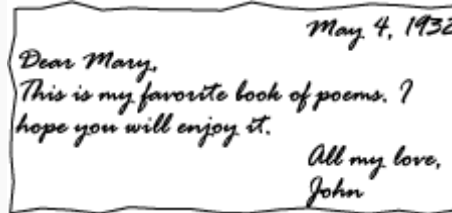 May 4, 1932
Dear Mary,
This is my favorite book of poems. I
hope you will enjoy it.
All my love,
John